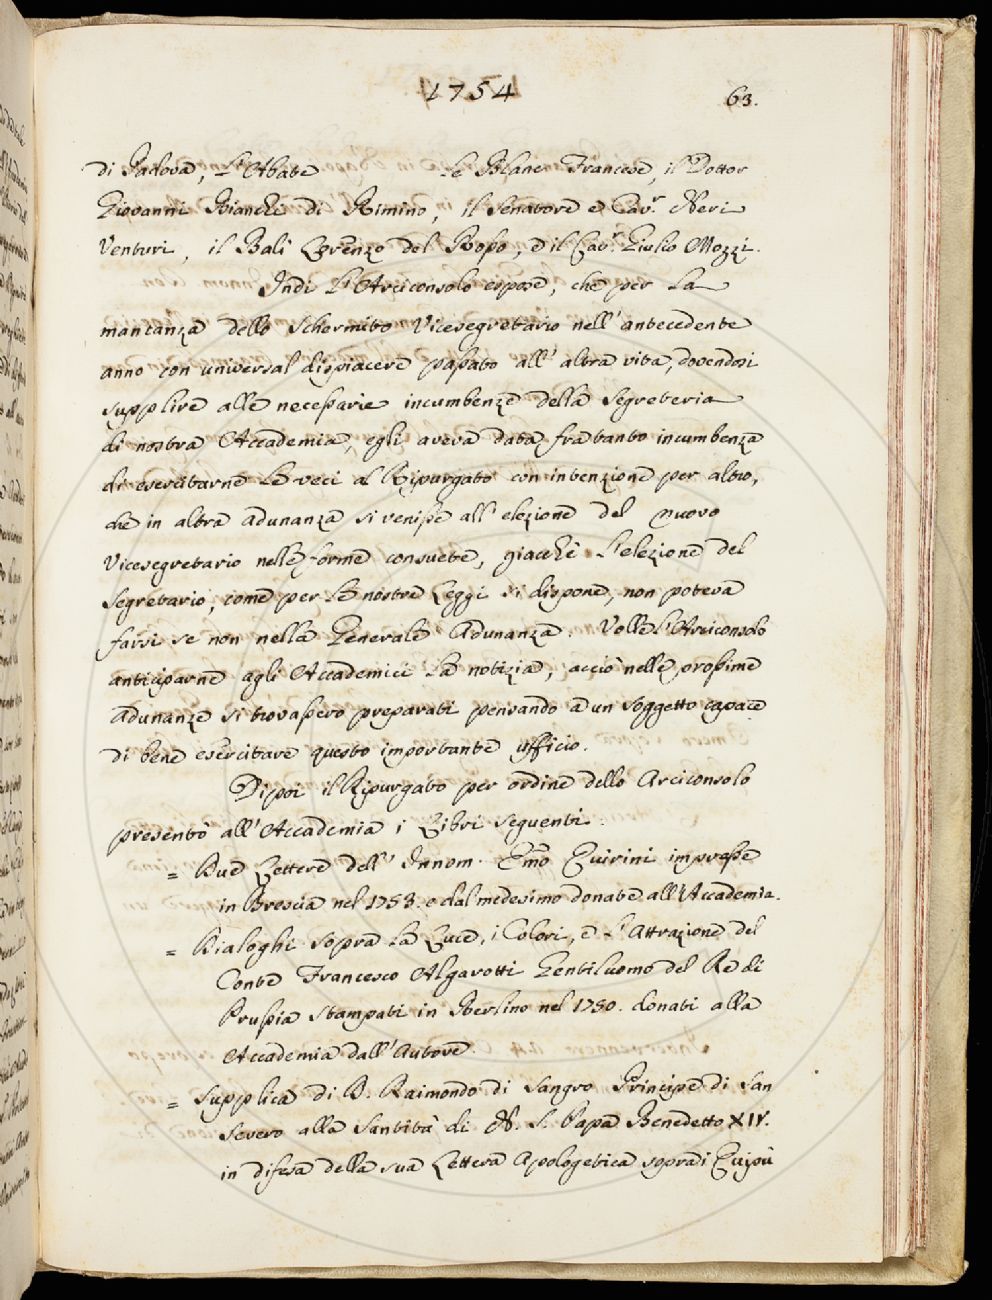 1754
63.
di Padova, L'Abate Le Blanc Francese, il Dottor
Giovanni Bianchi di Rimino, il Senatore e Cav.r Neri
Venturi, il Balì Lorenzo del Rosso, e il Cav.r Giulio Mozzi.
Indi l'Arciconsolo espose, che per la
mancanza dello Schermito Vicesegretario nell'antecedente
anno con universal dispiacere passato all'altra vita, dovendosi
supplire alle necessarie incumbenze della Segreteria
di nostra Accademia, egli aveva data frattanto incumbenza
di esercitarne le veci al Ripurgato con intenzione per altro,
che in altra adunanza si venisse all'elezione del nuovo
Vicesegretario nelle forme consuete, giacchè l'elezione del
Segretario, come per le nostre Leggi si dispone, non poteva
farsi se non nella Generale Adunanza. Volle l'Arciconsolo
anticiparne agli Accademici la notizia, acciò nelle prossime
adunanze si trovassero preparati pensando a un soggetto capace
di bene esercitare questo importante ufficio.
Dipoi il Ripurgato per ordine dello Arciconsolo
presentò all'Accademia i Libri seguenti.
= Due Lettere dell'Innom. Emo Quirini impresse
in Brescia nel 1753. e dal medesimo donate all'Accademia.
= Dialoghi sopra la Luce, i Colori, e l'Attrazione del
Conte Francesco Algarotti Gentiluomo del Re di
Prussia stampati in Berlino nel 1750. donati alla
Accademia dall'Autore.
= Supplica di D. Raimondo di Sangro Principe di San
Severo alla Santità di N. S. Papa Benedetto XIV.
in difesa della sua Lettera Apologetica sopra i Quipù